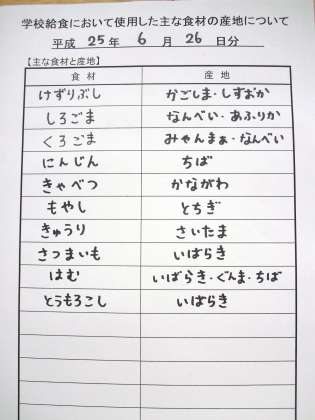 学校給食において使用した主な食材の産地について
平成 25 年 6 月 26 日分
【主な食材と産地】
食材 産地
けずりぶし かごしま・しずおか
しろごま なんべい・あふりか
くろごま みゃんまぁ・なんべい
にんじん ちば
きゃべつ かながわ
もやし とちぎ
きゅうり さいたま
さつまいも いばらき
はむ いばらき・ぐんま・ちば
とうもろこし いばらき